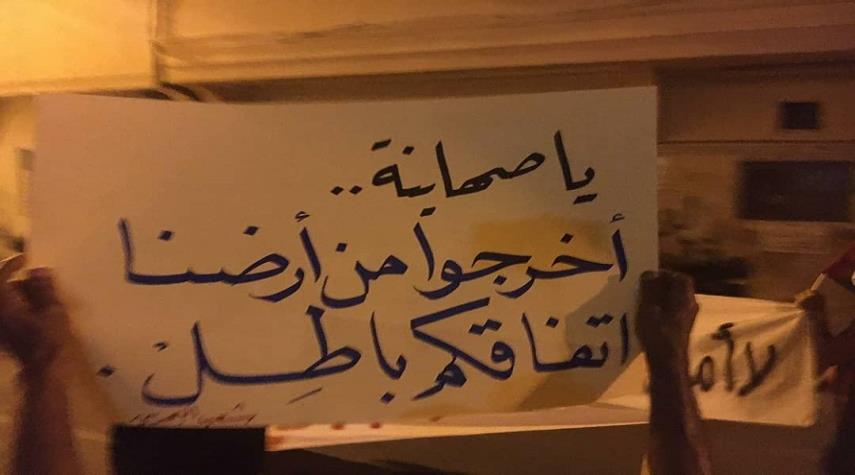 يا صهاينة..
أخرجوا من أرضنا
اتفاقكم باطل.
لا أم